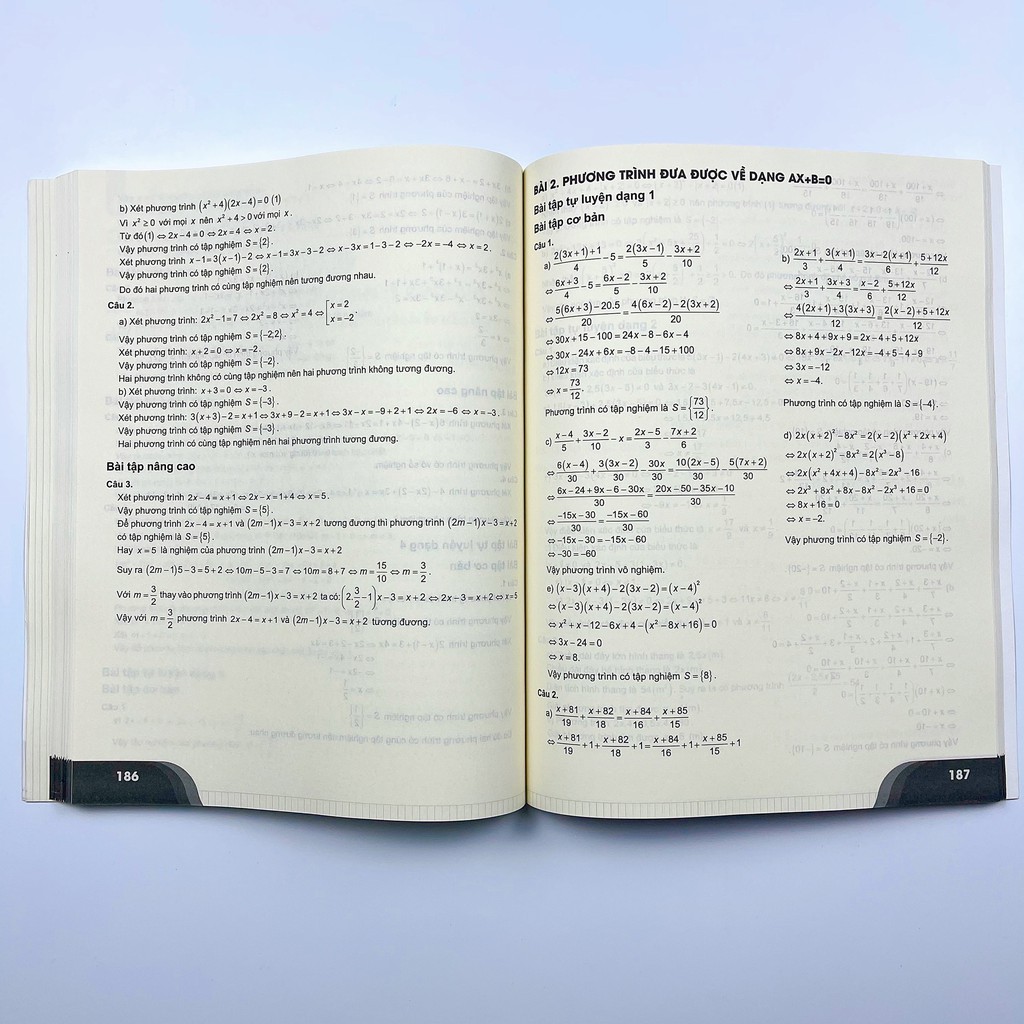 b) Xét phương trình (x²+4)(2x−4)=0 (1)
Vì x²≥0 với mọi x nên x²+4>0 với mọi x.
Từ đó (1)⇔2x−4=0⇔2x=4⇔x=2.
Vậy phương trình có tập nghiệm S={2}.
Xét phương trình x−1=3(x−1)−2⇔x−1=3x−3−2⇔x−3x=1−3−2⇔−2x=−4⇔x=2.
Vậy phương trình có tập nghiệm S={2}.
Do đó hai phương trình có cùng tập nghiệm nên tương đương nhau.
Câu 2.
a) Xét phương trình: 2x²−1=7⇔2x²=8⇔x²=4⇔[x=2 x=−2.
Vậy phương trình có tập nghiệm S={−2;2}.
Xét phương trình: x+2=0⇔x=−2.
Vậy phương trình có tập nghiệm S={−2}.
Hai phương trình không có cùng tập nghiệm nên hai phương trình không tương đương.
b) Xét phương trình: x+3=0⇔x=−3.
Vậy phương trình có tập nghiệm S={−3}.
Xét phương trình: 3(x+3)−2=x+1⇔3x+9−2=x+1⇔3x−x=−9+2+1⇔2x=−6⇔x=−3.
Vậy phương trình có tập nghiệm S={−3}.
Hai phương trình có cùng tập nghiệm nên hai phương trình tương đương.
Bài tập nâng cao
Câu 3.
Xét phương trình 2x−4=x+1⇔2x−x=1+4⇔x=5.
Vậy phương trình có tập nghiệm S={5}.
Để phương trình 2x−4=x+1 và (2m−1)x−3=x+2 tương đương thì phương trình (2m−1)x−3=x+2
có tập nghiệm là S={5}.
Hay x=5 là nghiệm của phương trình (2m−1)x−3=x+2
Suy ra (2m−1)5−3=5+2⇔10m−5−3=7⇔10m=8+7⇔m=15/10⇔m=3/2.
Với m=3/2 thay vào phương trình (2m−1)x−3=x+2 ta có: (2.3/2−1)x−3=x+2⇔2x−3=x+2⇔x=5
Vậy với m=3/2 phương trình 2x−4=x+1 và (2m−1)x−3=x+2 tương đương.
186
BÀI 2. PHƯƠNG TRÌNH ĐƯA ĐƯỢC VỀ DẠNG AX+B=0
Bài tập tự luyện dạng 1
Bài tập cơ bản
Câu 1.
a) (2(3x+1)+1)/4−5=2(3x−1)/5−(3x+2)/10
⇔(6x+3)/4−5=(6x−2)/5−(3x+2)/10
⇔(5(6x+3)−20.5)/20=(4(6x−2)−2(3x+2))/20
⇔30x+15−100=24x−8−6x−4
⇔30x−24x+6x=−8−4−15+100
⇔12x=73
⇔x=73/12.
Phương trình có tập nghiệm là S={73/12}.
b) (2x+1)/3+3(x+1)/4=(3x−2(x+1))/6+(5+12x)/12
⇔(2x+1)/3+(3x+3)/4=(x−2)/6+(5+12x)/12
⇔(4(2x+1)+3(3x+3))/12=(2(x−2)+5+12x)/12
⇔8x+4+9x+9=2x−4+5+12x
⇔8x+9x−2x−12x=−4+5−4−9
⇔3x=−12
⇔x=−4.
Phương trình có tập nghiệm là S={−4}.
c) (x−4)/5+(3x−2)/10−x=(2x−5)/3−(7x+2)/6
⇔6(x−4)/30+3(3x−2)/30−30x/30=10(2x−5)/30−5(7x+2)/30
⇔(6x−24+9x−6−30x)/30=(20x−50−35x−10)/30
⇔(−15x−30)/30=(−15x−60)/30
⇔−15x−30=−15x−60
⇔−30=−60
Vậy phương trình vô nghiệm.
d) 2x(x+2)²−8x²=2(x−2)(x²+2x+4)
⇔2x(x+2)²−8x²=2(x³−8)
⇔2x(x²+4x+4)−8x²=2x³−16
⇔2x³+8x²+8x−8x²−2x³+16=0
⇔8x+16=0
⇔x=−2.
Vậy phương trình có tập nghiệm S={−2}.
e) (x−3)(x+4)−2(3x−2)=(x−4)²
⇔(x−3)(x+4)−2(3x−2)=(x−4)²
⇔x²+x−12−6x+4−(x²−8x+16)=0
⇔3x−24=0
⇔x=8.
Vậy phương trình có tập nghiệm S={8}.
Câu 2.
a) (x+81)/19+(x+82)/18=(x+84)/16+(x+85)/15
⇔(x+81)/19+1+(x+82)/18+1=(x+84)/16+1+(x+85)/15+1
187